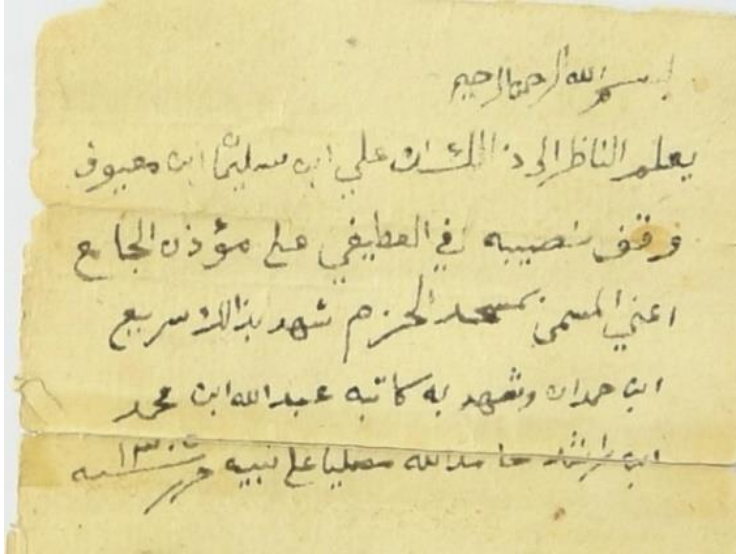 بسم الله الرحمن الرحيم
يعلم الناظر الى ذالك ان علي ابن سليمان ابن معيوف
وقف نصيبه في العطيفي على مؤذن الجامع
اعني المسمى بمسجد الحزم شهد بذالك سريع
ابن حمدان وشهد به كاتبه عبد الله ابن محمد
ابن راشد حامد لله مصليا على نبيه حرر